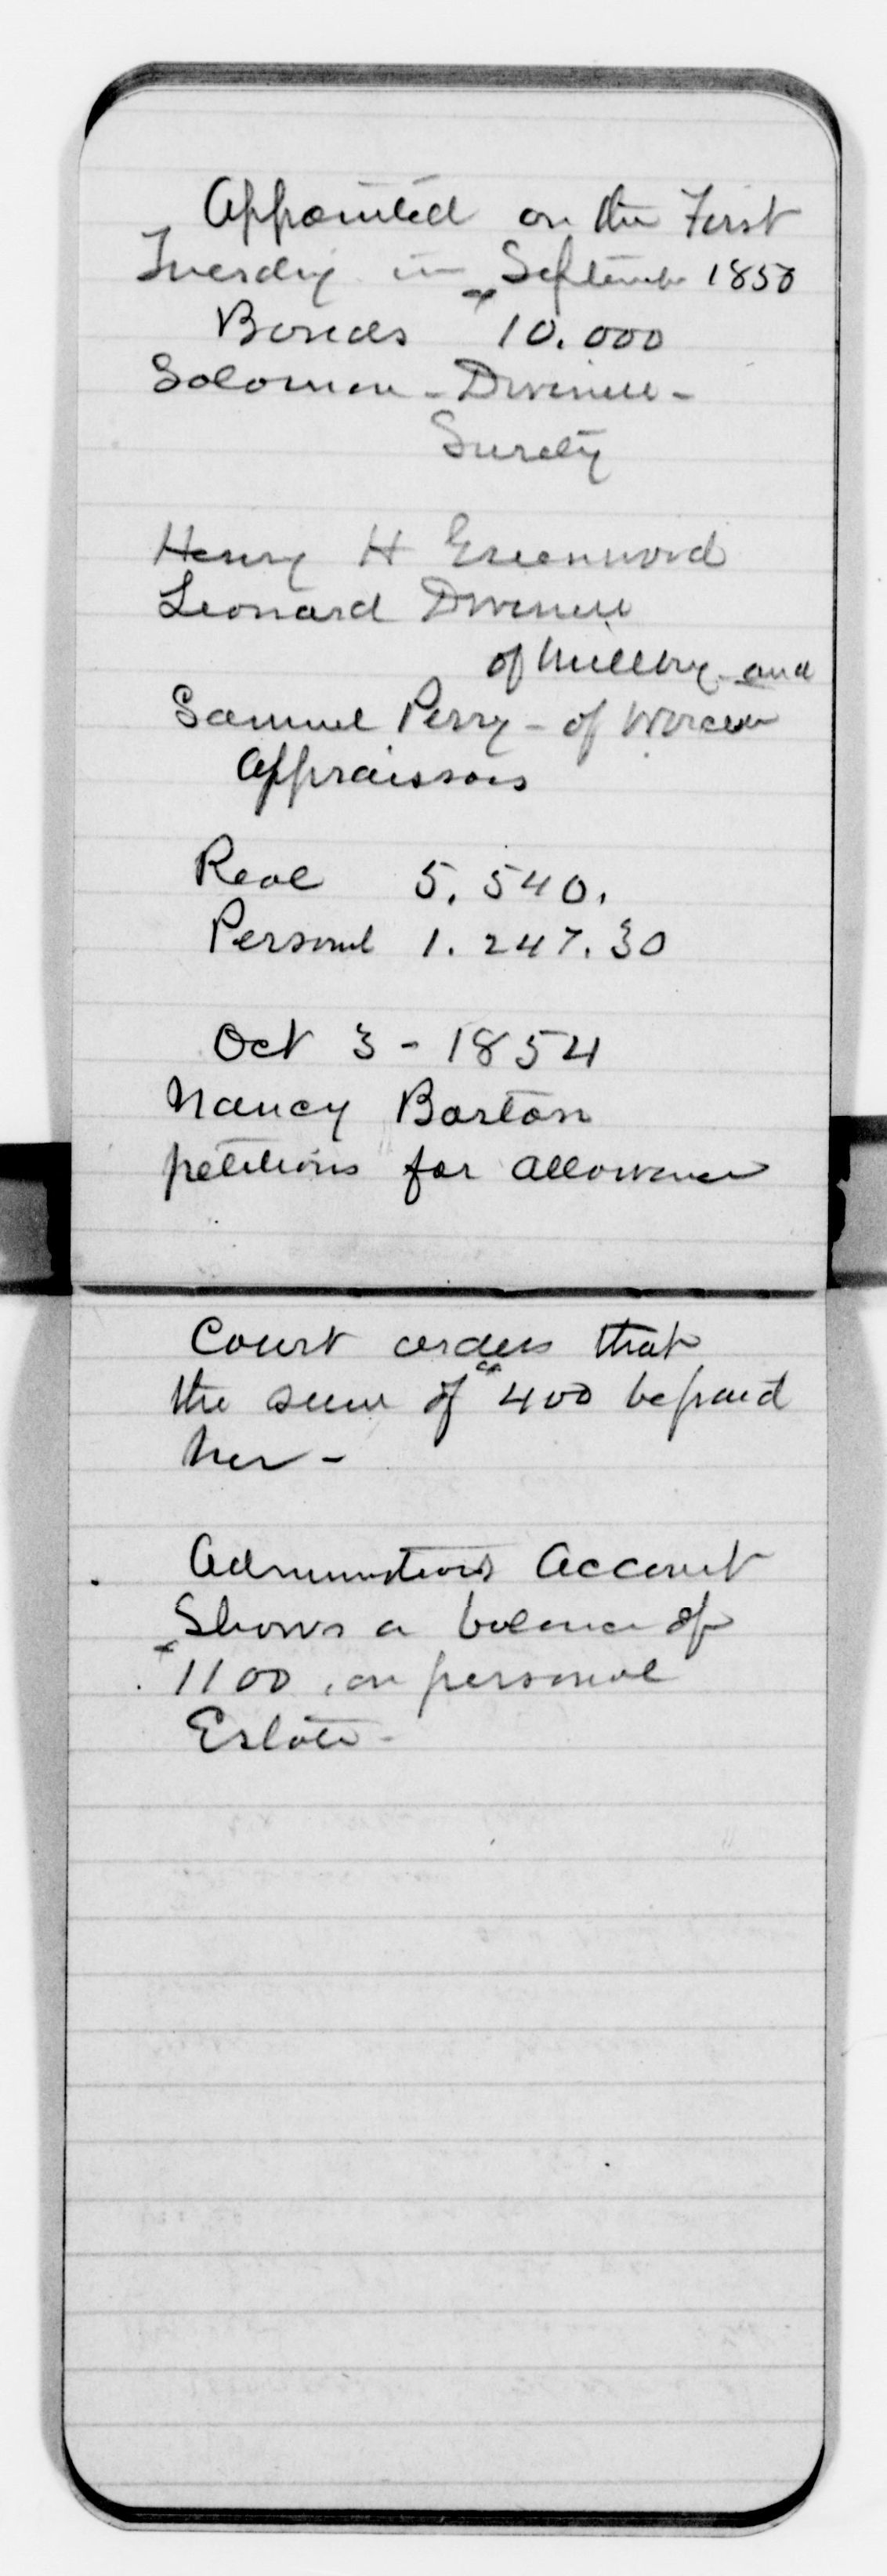 Appointed on the First
Tuesday in September 1850
Bonds $10.000
Solomon - Dwinell -
Surety
Henry H Greenwood
Leonard Dwinell
of Millbury and
Samuel Perry - of Worcester
Appraissors
Real 5.540.
Personal 1.247.30
Oct 3 - 1854
Nancy Barton
petitions for allowance
Court orders that
the sum of $400 be paid
her -
Administrators Account
Shows a balance of
$1100. on personal
Estate -